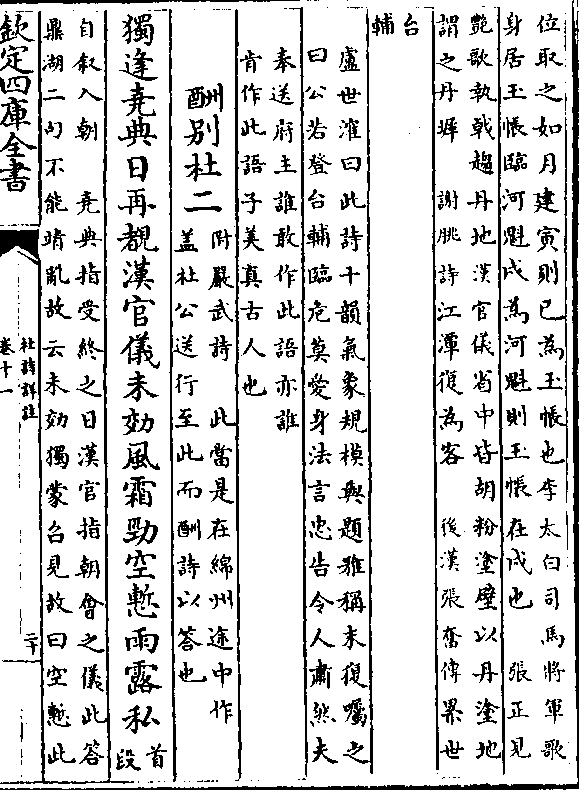 位取之如月建寅則已為玉帳也李太白司馬將軍歌
身居玉帳臨河魁戌為河魁則玉帳在戌也　張正見
艶歌執戟趨丹地漢官儀省中皆胡粉塗壁以丹塗地
謂之丹墀　謝朓詩江潭復為客　後漢張奮傳累世
台
輔
盧世㴶曰此詩十韻氣象規模與題雅稱末復囑之
曰公若登台輔臨危莫愛身法言忠告令人肅然夫
奉送府主誰敢作此語亦誰
肯作此語子美真古人也
酬别杜二
附嚴武詩　此當是在綿州途中作
蓋杜公送行至此而酬詩以答也
獨逢堯典日再覩漢官儀未効風霜勁空慙雨露私
首
段
自叙入朝　堯典指受終之日漢官指朝會之儀此答
鼎湖二句不能靖亂故云未効獨蒙召見故曰空慙此
欽定四庫全書
杜詩詳註
卷十一
二十